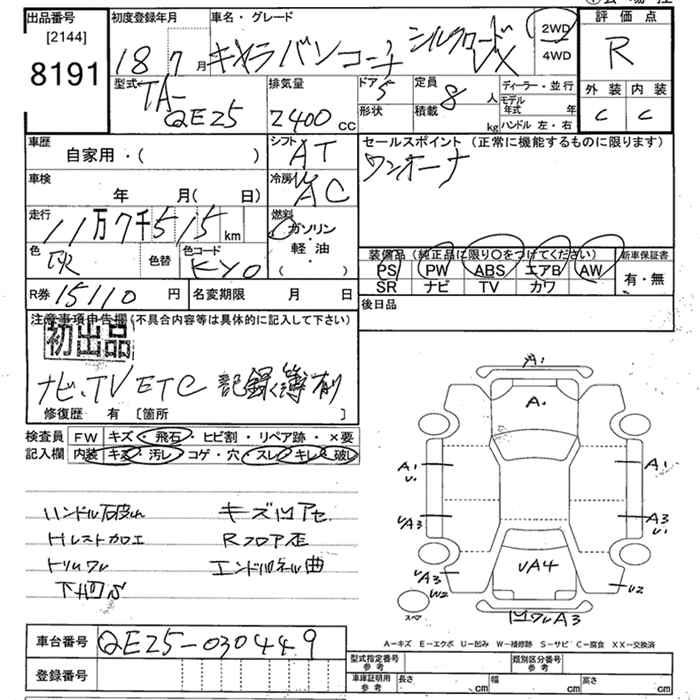 出品番号
[2144]
8191
初度登録年月
18 7月
車名・グレード
キャラバンコーチ シルクロード VX
2WD
4WD
評価点
R
外装 内装
C C
型式
TA-
QE25
排気量
2400 CC
ドア 5
形状
定員 8人
積載 kg
ディーラー・並行
モデル年式 年
ハンドル 左・右
車歴
自家用・( )
シフト AT
セールスポイント (正常に機能するものに限ります)
ワンオーナー
車検
年 月( 日)
冷房 AC
走行 11万7千515 km
燃料
ガソリン
・
軽・油
( )
色
色替
色コード
KY0
装備品 (純正品に限り〇をつけてください)
PS PW ABS エアB AW
SR ナビ TV カワ
新車保証書
有・無
R券 15110 円
名変期限 月 日
後日品
注意事項申告欄(不具合内容等は具体的に記入して下さい)
初出品
ナビ、TV ETC 記録簿有
修復歴 有 [箇所 ]
検査員
記入欄
FW キズ・飛石・ヒビ割・リペア跡・×要
内装 キズ・汚レ・コゲ・穴・スレ・キレ・破レ
キズ凹アセ
Rフロア歪
エンドパネル曲
A1
A.
A1
U1
A3
UA3
UA3
W2
UA4
U2
凹ワレA3
スペア
A-キズ E-エクボ U-凹み W-補修跡 S-サビ C-腐食 XX-交換済
車台番号 QE25-030449
登録番号
型式指定番号
参考
類別区分番号
参考
車庫証明用
参考
長さ cm
幅 cm
高さ cm